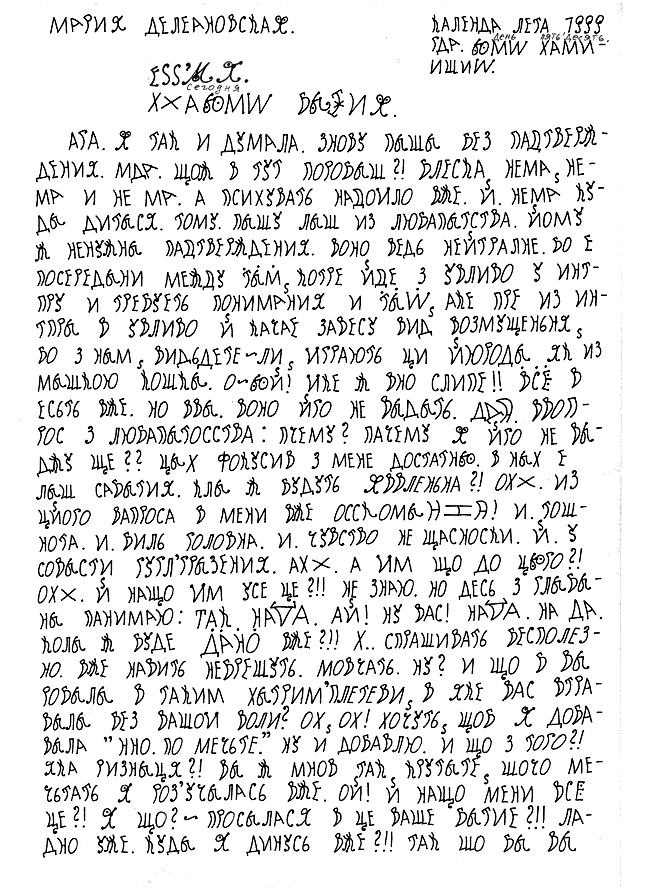 МАРИЯ ДЕЛЕАНОВСКАЯ.
КАЛЕНДА ЛЕТА 1999
день пять десять
ESS'МЯ.
сегодня
АГА. Я ТАК И ДУМАЛА. ЗНОВУ ПЫШЫ БЕЗ ПАДТВЕРЖ-
ДЕНИЯ. МДА. ЩОЖ В ТУТ ПОРОБЫШ?! БЛЕСКА, НЕМА, НЕ-
МА И НЕ МА. А ПСИХУВАТЬ НАДОИЛО ВЖЕ. Й. НЕМА КУ-
ДЫ ДИТЬСЯ. ТОМУ. ПЫШУ ЛЫШ ИЗ ЛЮБАПЫТСТВА. ЙОМУ
Ж НЕНУЖНЫ ПАДТВЕРЖДЕНИЯ. ВОНО ВЕДЬ НЕЙТРАЛНЕ. БО Е
ПОСЕРЕДЫНИ МЕЖДУ ТЫМ, КОТРЕ ЙДЕ З УВЛИВО У ИНТ-
ГРУ И ТРЕБУЕТЬ ПОНИМАНИЯ И ТЫМ, ЯКЕ ПРЕ ИЗ ИН-
ТГРЫ В УВЛИВО Й КАЧАЕ ЗАВЕСУ ВИД ВОЗМУЩЕНЬНЯ,
БО З НЫМ, ВИДЬДЕТЕ~ЛИ, ИГРАЮТЬ ЦИ ЙЮРОДЫ ЯК ИЗ
МЫШКОЮ КОШКЫ. О~ОЙ! ИКЕ Ж ВНО СЛИПЕ!! ВСЁ В
ЕСЬТЬ ВЖЕ. НО ВВЫ. ВОНО ЙГО НЕ ВЫДЫТЬ. ВВОП-
РОС З ЛЮБАПЫТОССТВА: ПЧЕМУ? ПАЧЕМУ Я ЙГО НЕ ВЫ-
ДЖУ ЩЕ?? ЦЫХ ФОКУСИВ З МЕНЕ ДОСТАТНЬО. В НЫХ Е
ЛЫШ САБЫТИЯ. КЛЫ Ж БУДУТЬ ЯВВЛЕНЬНА?! ОХ×. ИЗ
ЦЙОГО ВАПРОСА В МЕНИ ВЖЕ ОССКОМЫ И. ТОШ-
НОТА. И. БИЛЬ ГОЛОВНА. И. ЧУВСТВО НЕ ЩАСНОСКИ. И. У
СОВЫСТИ УГЛ'ТРЫЗЕНИЯ. АХ×. А ИМ ЩО ДО ЦЬОГО?!
ОХ×. Й НАЩО ИМ УСЕ ЦЕ?!! НЕ ЗНАЮ. НО ДЕСЬ З ГЛЫБЫ-
НЫ ПАНИМАЮ: ТАК. НА▽А. АЙ! НУ ВАС! НА▽А. НА ДА.
КОЛЫ Ж БУДЕ ДАНО ВЖЕ?!! Х.. СПРАШИВАТЬ БЕСПОЛЕЗ-
НО. ВЖЕ НАВИТЬ НЕБРЕШУТЬ. МОВЧАТЬ. НУ? И ЩО В ВЫ
РОБЫЛЫ В ТАКИМ ХЫТРИМ'ПЛЕТЕВИ, В ЯКЕ ВАС ВТРА-
ВЫЛЫ БЕЗ ВАШОИ ВОЛИ? ОХ, ОХ! ХОЧУТЬ, ЩОБ Я ДОБА-
ВЫЛА "ННО. ПО МЕЧЬТЕ." НУ И ДОБАВЛЮ. И ЩО З ТОГО?!
ЯКА РИЗНЫЦЯ?! ВЫ Ж МНОВ ТАК, КРУТЫТЕ, ШОЧО МЕ-
ЧЬТАТЬ Я РОЗ'УЧЫЛАСЬ ВЖЕ. ОЙ! Й НАЩО МЕНИ ВСЕ
ЦЕ?! Я ЩО? ~ ПРОСЫЛАСЯ В ЦЕ ВАШЕ БЫТИЕ?!! ЛА-
ДНО УЖЕ. КУДЫ Я ДИНУСЬ ВЖЕ?!! ТАК ШО ВЫ ВЫ